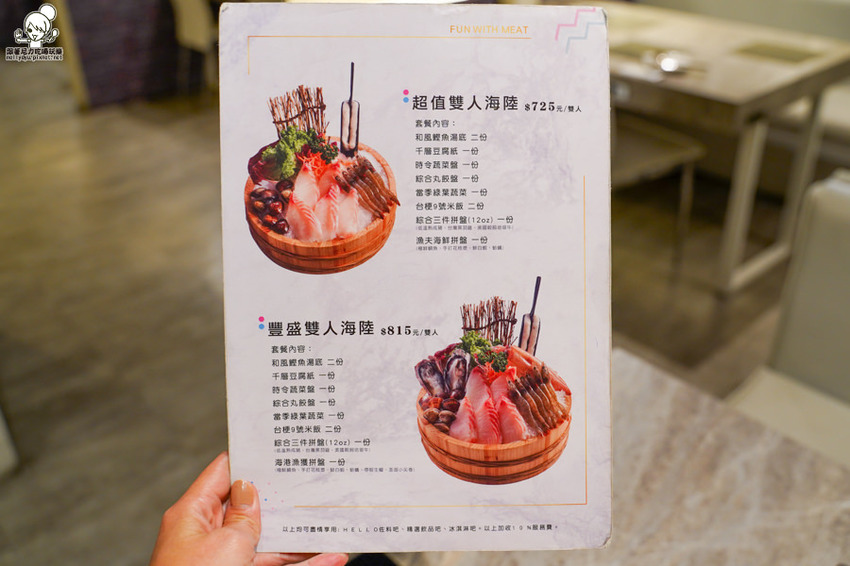 FUN WITH MEAT
超值雙人海陸 $725元/雙人
套餐內容：
和風鰹魚湯底 二份
千層豆腐紙 一份
時令蔬菜盤 一份
綜合丸餃盤 一份
當季綠葉蔬菜 一份
台梗9號米飯 二份
綜合三件拼盤(12oz) 一份
漁夫海鮮拼盤 一份
豐盛雙人海陸 $815元/雙人
套餐內容：
和風鰹魚湯底 二份
千層豆腐紙 一份
時令蔬菜盤 一份
綜合丸餃盤 一份
當季綠葉蔬菜 一份
台梗9號米飯 二份
綜合三件拼盤(12oz) 一份
海港漁獲拼盤 一份
以上均可盡情享用: HELLO佐料吧、精選飲品吧、冰淇淋吧。以上加收10%服務費。